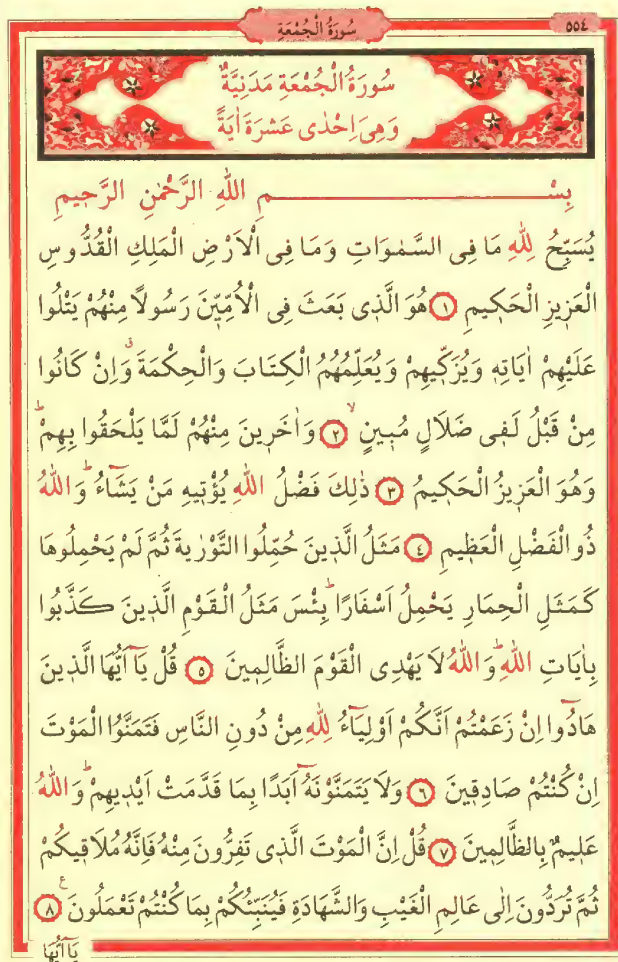 ٥٥٤
سُورَةُ الْجُمْعَةِ
سُورَةُ الْجُمْعَةِ مَدَنِيَّةٌ
وَهِىَ اِحْدٰى عَشَرَةَ اٰيَةً
بِسْمِ اللهِ الرَّحْمٰنِ الرَّحِيمِ
يُسَبِّحُ لِلهِ مَا فِى السَّمٰوَاتِ وَمَا فِى الْاَرْضِ الْمَلِكِ الْقُدُّوسِ
الْعَزِيزِ الْحَكِيمِ ١ هُوَ الَّذِى بَعَثَ فِى الْاُمِّيّنَ رَسُولًا مِنْهُمْ يَتْلُوا
عَلَيْهِمْ اٰيَاتِهِ وَيُزَكِّيهِمْ وَيُعَلِّمُهُمُ الْكِتَابَ وَالْحِكْمَةَ ۗ وَاِنْ كَانُوا
مِنْ قَبْلُ لَفِى ضَلَالٍ مُبِينٍ ۙ ٢ وَاٰخَرِينَ مِنْهُمْ لَمَّا يَلْحَقُوا بِهِمْ ۜ
وَهُوَ الْعَزِيزُ الْحَكِيمُ ٣ ذٰلِكَ فَضْلُ اللهِ يُؤْتِيهِ مَنْ يَشَٓاءُ ۜ وَاللهُ
ذُو الْفَضْلِ الْعَظِيمِ ٤ مَثَلُ الَّذِينَ حُمِّلُوا التَّوْرٰيةَ ثُمَّ لَمْ يَحْمِلُوهَا
كَمَثَلِ الْحِمَارِ يَحْمِلُ اَسْفَارًا ۜ بِئْسَ مَثَلُ الْقَوْمِ الَّذِينَ كَذَّبُوا
بِاٰيَاتِ اللهِ ۜ وَاللهُ لَا يَهْدِى الْقَوْمَ الظَّالِمِينَ ٥ قُلْ يَٓا اَيُّهَا الَّذِينَ
هَادُٓوا اِنْ زَعَمْتُمْ اَنَّكُمْ اَوْلِيَٓاءُ لِلهِ مِنْ دُونِ النَّاسِ فَتَمَنَّوُا الْمَوْتَ
اِنْ كُنْتُمْ صَادِقِينَ ٦ وَلَا يَتَمَنَّوْنَهُٓ اَبَدًا بِمَا قَدَّمَتْ اَيْدِيهِمْ ۜ وَاللهُ
عَلِيمٌ بِالظَّالِمِينَ ٧ قُلْ اِنَّ الْمَوْتَ الَّذِى تَفِرُّونَ مِنْهُ فَاِنَّهُ مُلَاقِيكُمْ
ثُمَّ تُرَدُّونَ اِلٰى عَالِمِ الْغَيْبِ وَالشَّهَادَةِ فَيُنَبِّئُكُمْ بِمَا كُنْتُمْ تَعْمَلُونَ ع ٨
يَٓا اَيُّهَا